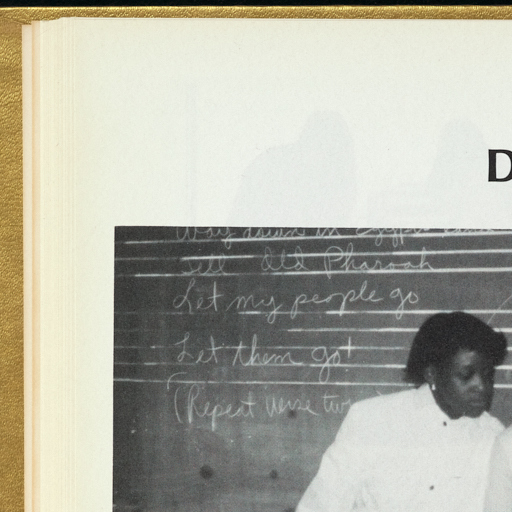 D
Way down in Egypt
Tell Old Pharoah
Let my people go
Let them go!
(Repeat verse two